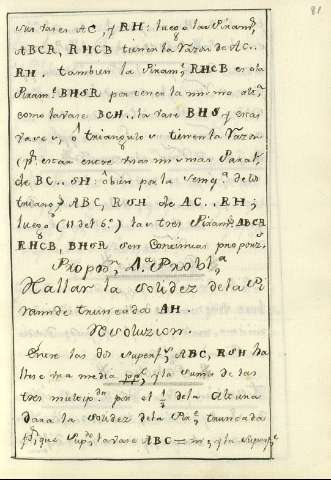 81
sus bases AC, y RH: luego las Piram.s
ABCR, RHCB tienen la razon de AC..
RH. tambien la Piram.e RHCB es a la
Piram.e BHSR por tener la misma alt.a
como la vase BCH.. la vase BHS y estas
vases, ô triangulos tienen la razon
(p.r estar entre unas mismas Paral.s
de BC.. SH: ô bien por la semej.a de los
triang.s ABC, RSH de AC.. RH;
luego (11 del 5.o) las tres Piram.s ABCR
RHCB, BHSR son Continuas propor.s
Propos.n 4.a Probl.a
Hallar la solidez de la Pi
ramide truncada AH.
Resoluzion.
Entre las dos superf.s ABC, RSH ha
llese una media pp.l y la suma de las
tres multip.da por el 1/3 de la Altura
dara la solidez de la Pir.e truncada
p.r que sup.do la vase ABC = m; y la superf.e